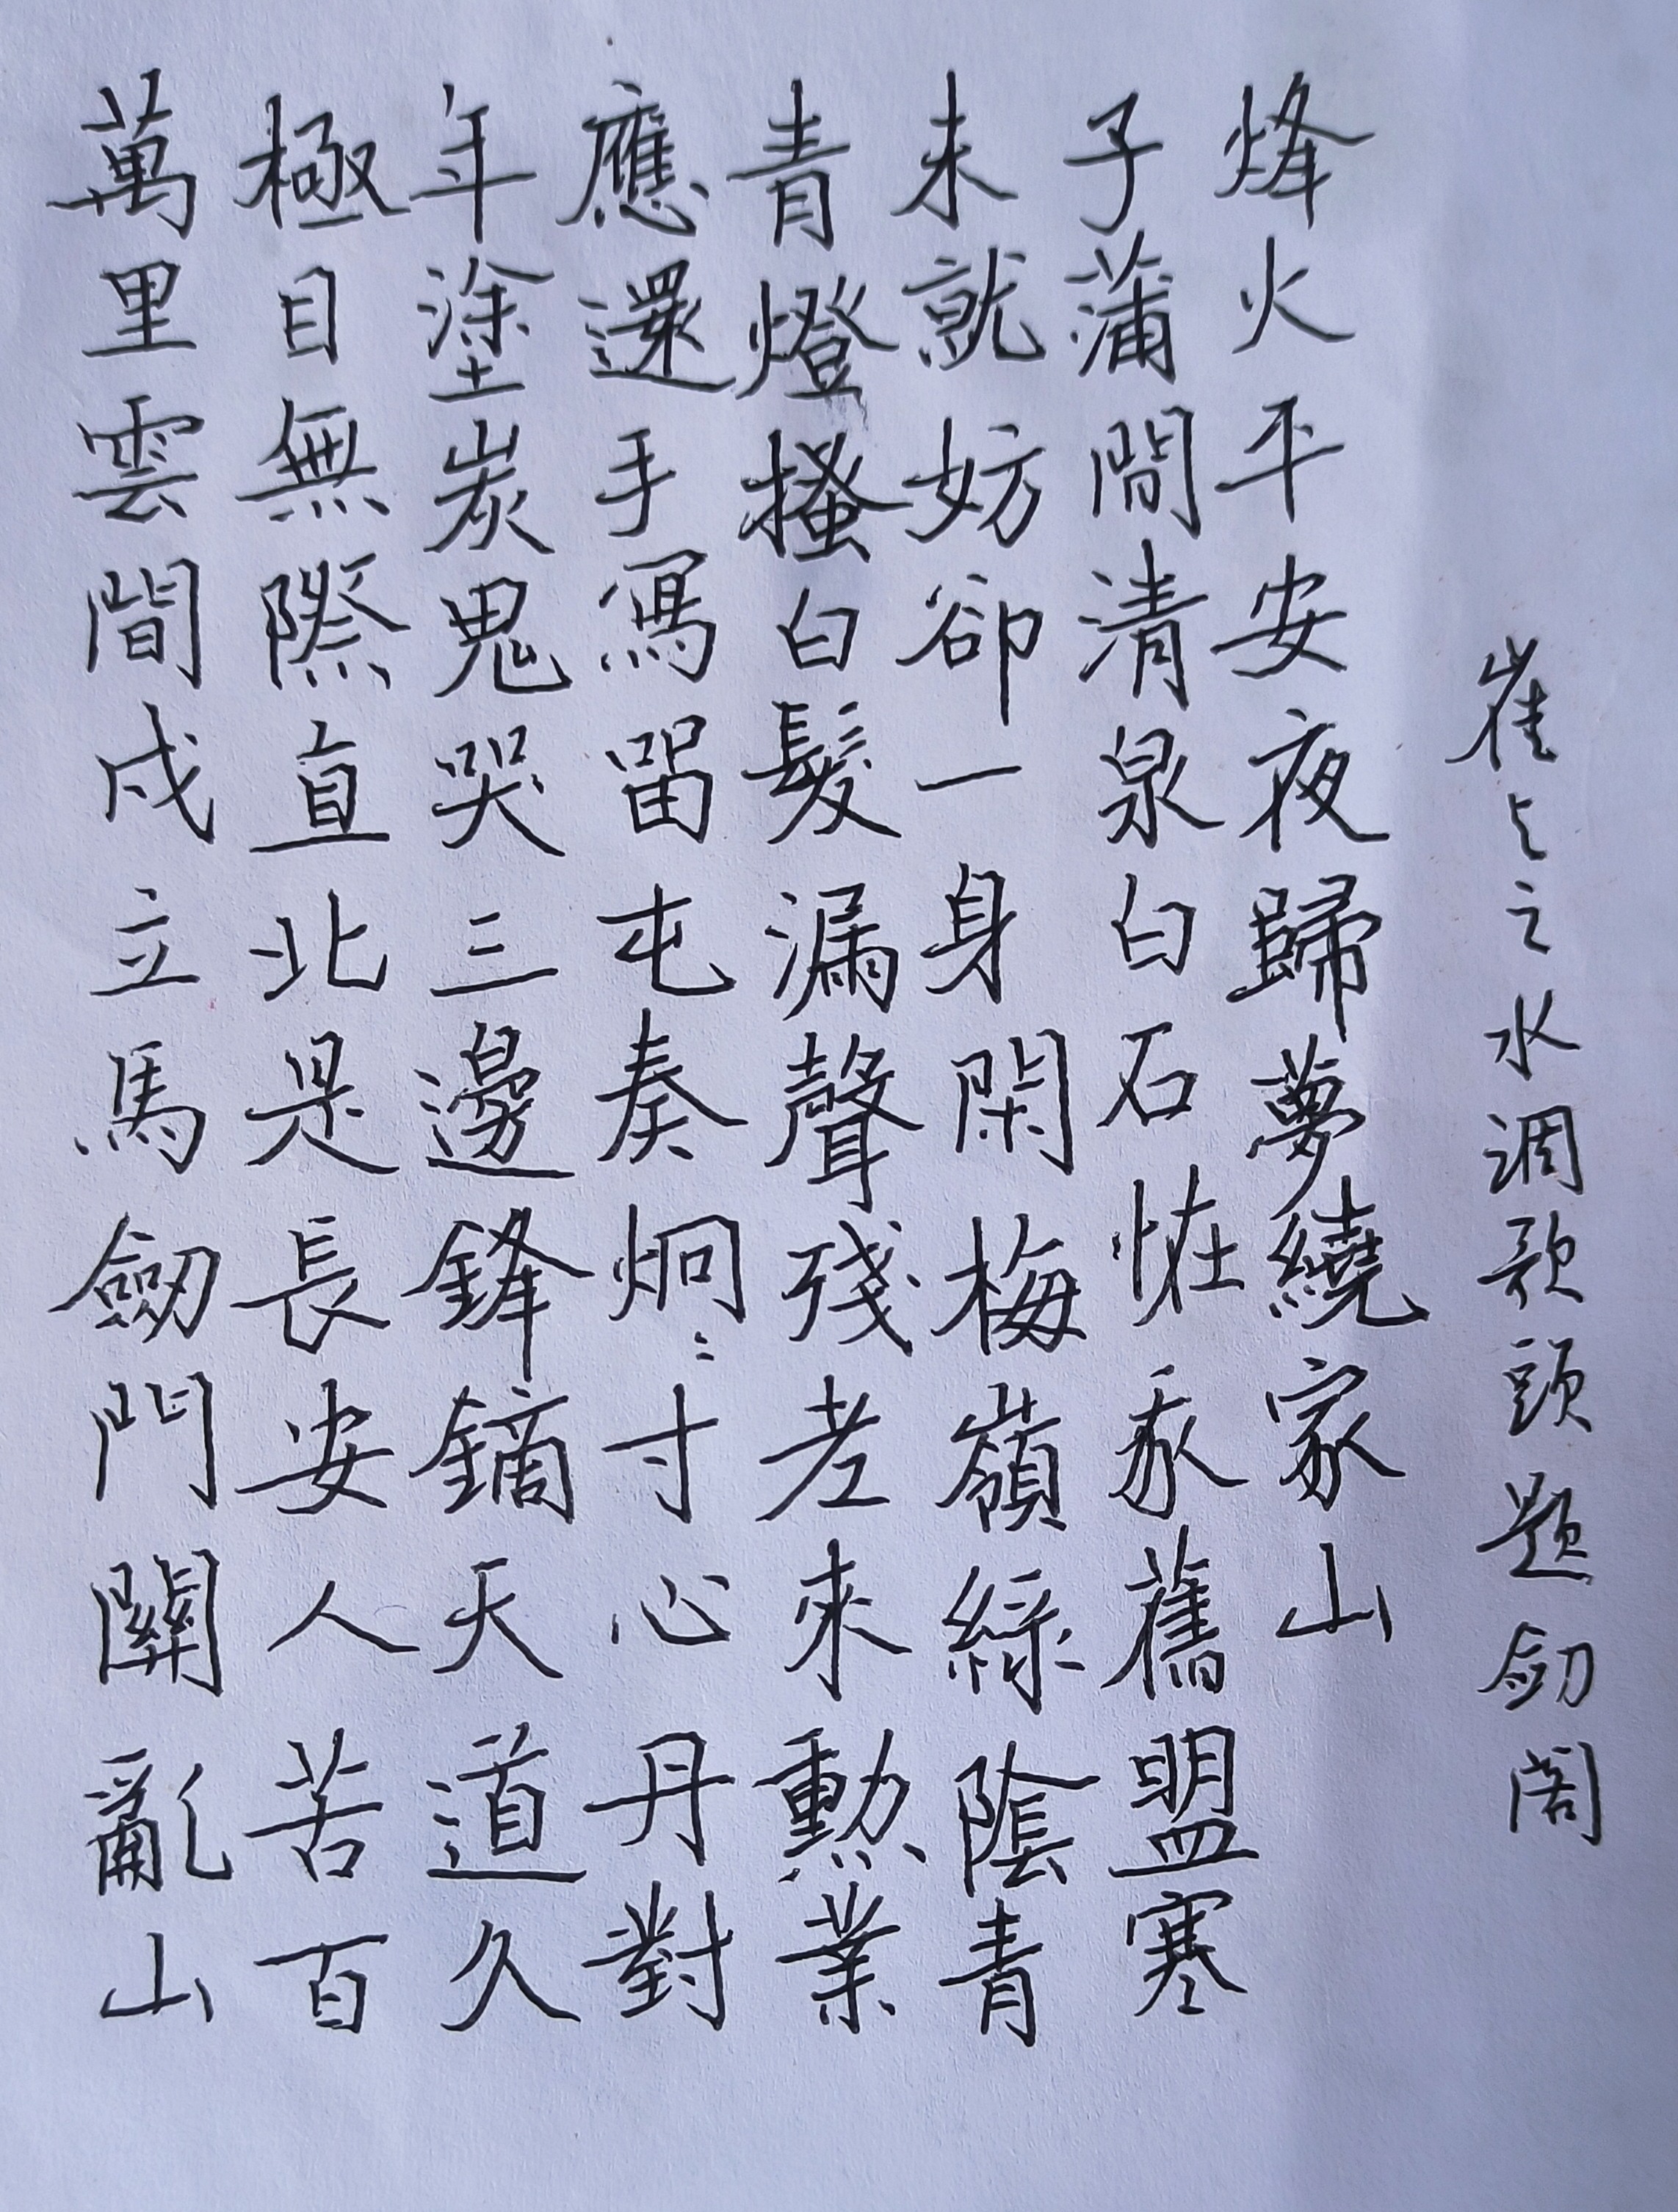 萬里雲間戍立馬劒門關亂山
極目無際直北是長安人苦百
年塗炭鬼哭三邊鋒鏑天道久
應還手寫畱屯奏炯〻寸心丹對
青燈搔白髮漏聲殘老來勳業
未就妨卻一身閑梅嶺綠陰青
子蒲間清泉白石恠我舊盟寒
烽火平安夜歸夢繞家山
崔与之水调歌頭题劒阁